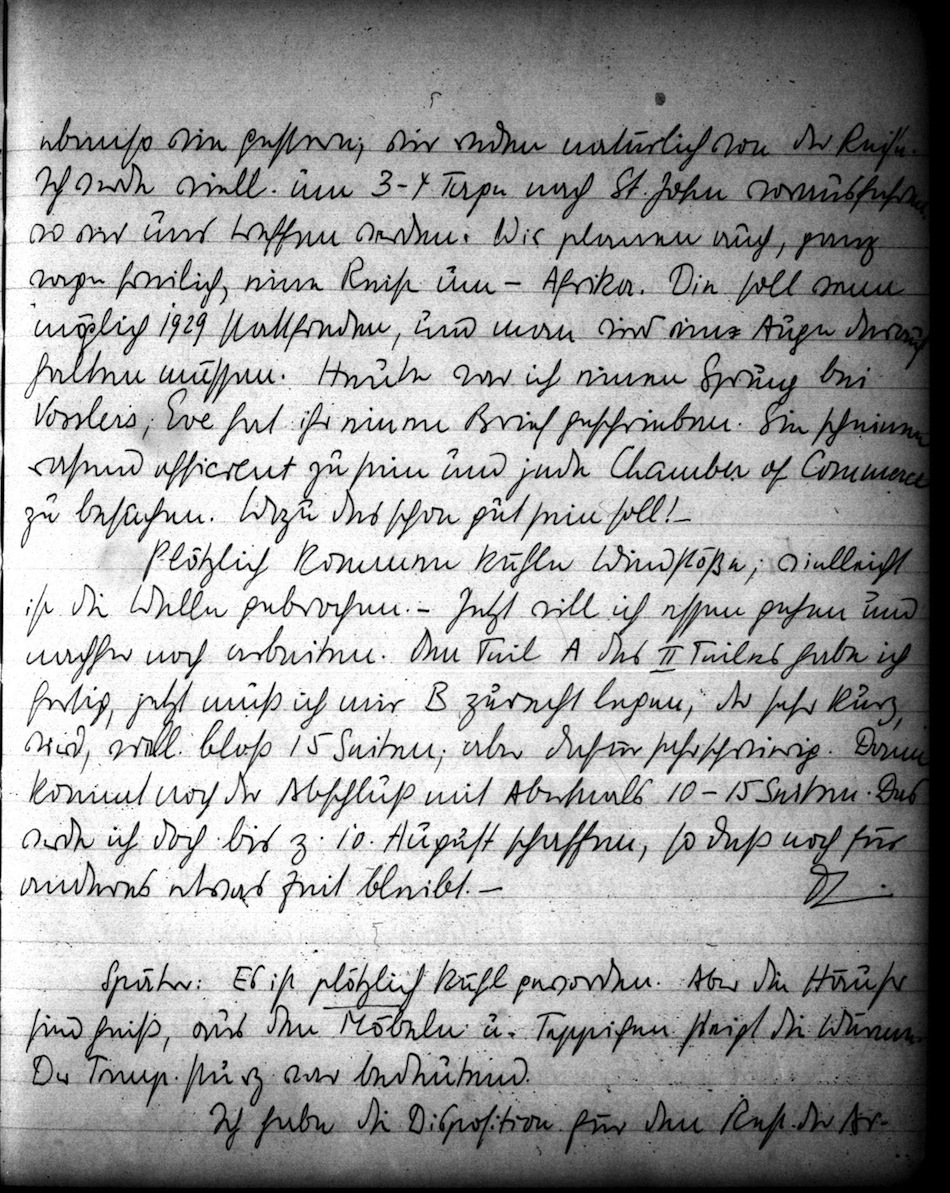 ebenso wie gestern; wir reden natürlich von der Reise.
Ich werde viell. um 3-4 Tage nach St. John vorausfahren
wo wir uns treffen werden. Wir planen auch, ganz
vage freilich, eine Reise um – Afrika. Die soll wenn
möglich 1929 stattfinden, und man wird eine Auge darauf
halten müssen. Heute war ich einen Sprung bei
Vosslers; Eve hat ihr einen Brief geschrieben. Sie scheinen
rasend efficient zu sein und jede Chamber of Commerce
zu besuchen. Wozu das schon gut sein soll! –
Plötzlich kommen kühle Windstöße; vielleicht
ist die Welle gebrochen. – Jetzt will ich essen gehen und
nachher noch arbeiten. Den Teil A des II Teiles habe ich
fertig, jetzt muß ich mir B zurecht legen, der sehr kurz
wird, viell. bloß 15 Seiten, aber dafür sehr schwierig. Dann
kommt noch der Abschluß mit abermals 10–15 Seiten. Das
werde ich doch bis z. 10. August schaffen, so daß noch für
anderes etwas Zeit bleibt. –
Später: Es ist plötzlich kühl geworden. Aber die Häuser
sind heiß, aus den Möbeln u. Teppichen steigt die Wärme.
Der Temp. sturz war bedeutend.
Ich habe die Disposition für den Rest der Ar-